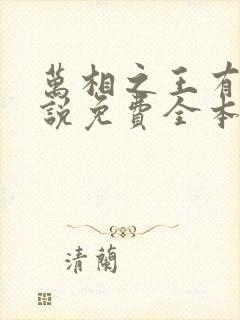 萬相之王有
說免費全本
清蘭